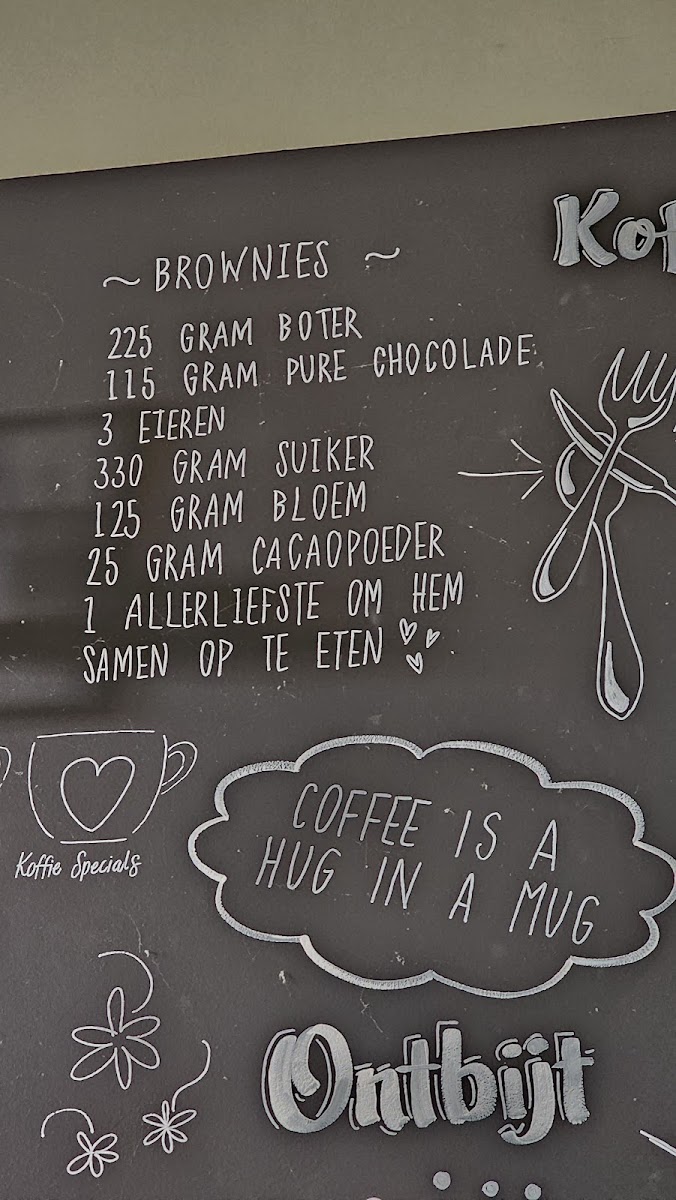 ~ BROWNIES ~
225 GRAM BOTER
115 GRAM PURE CHOCOLADE
3 EIEREN
330 GRAM SUIKER
125 GRAM BLOEM
25 GRAM CACAOPOEDER
1 ALLERLIEFSTE OM HEM
SAMEN OP TE ETEN
Koffie Specials
COFFEE IS A
HUG IN A MUG
Ontbijt